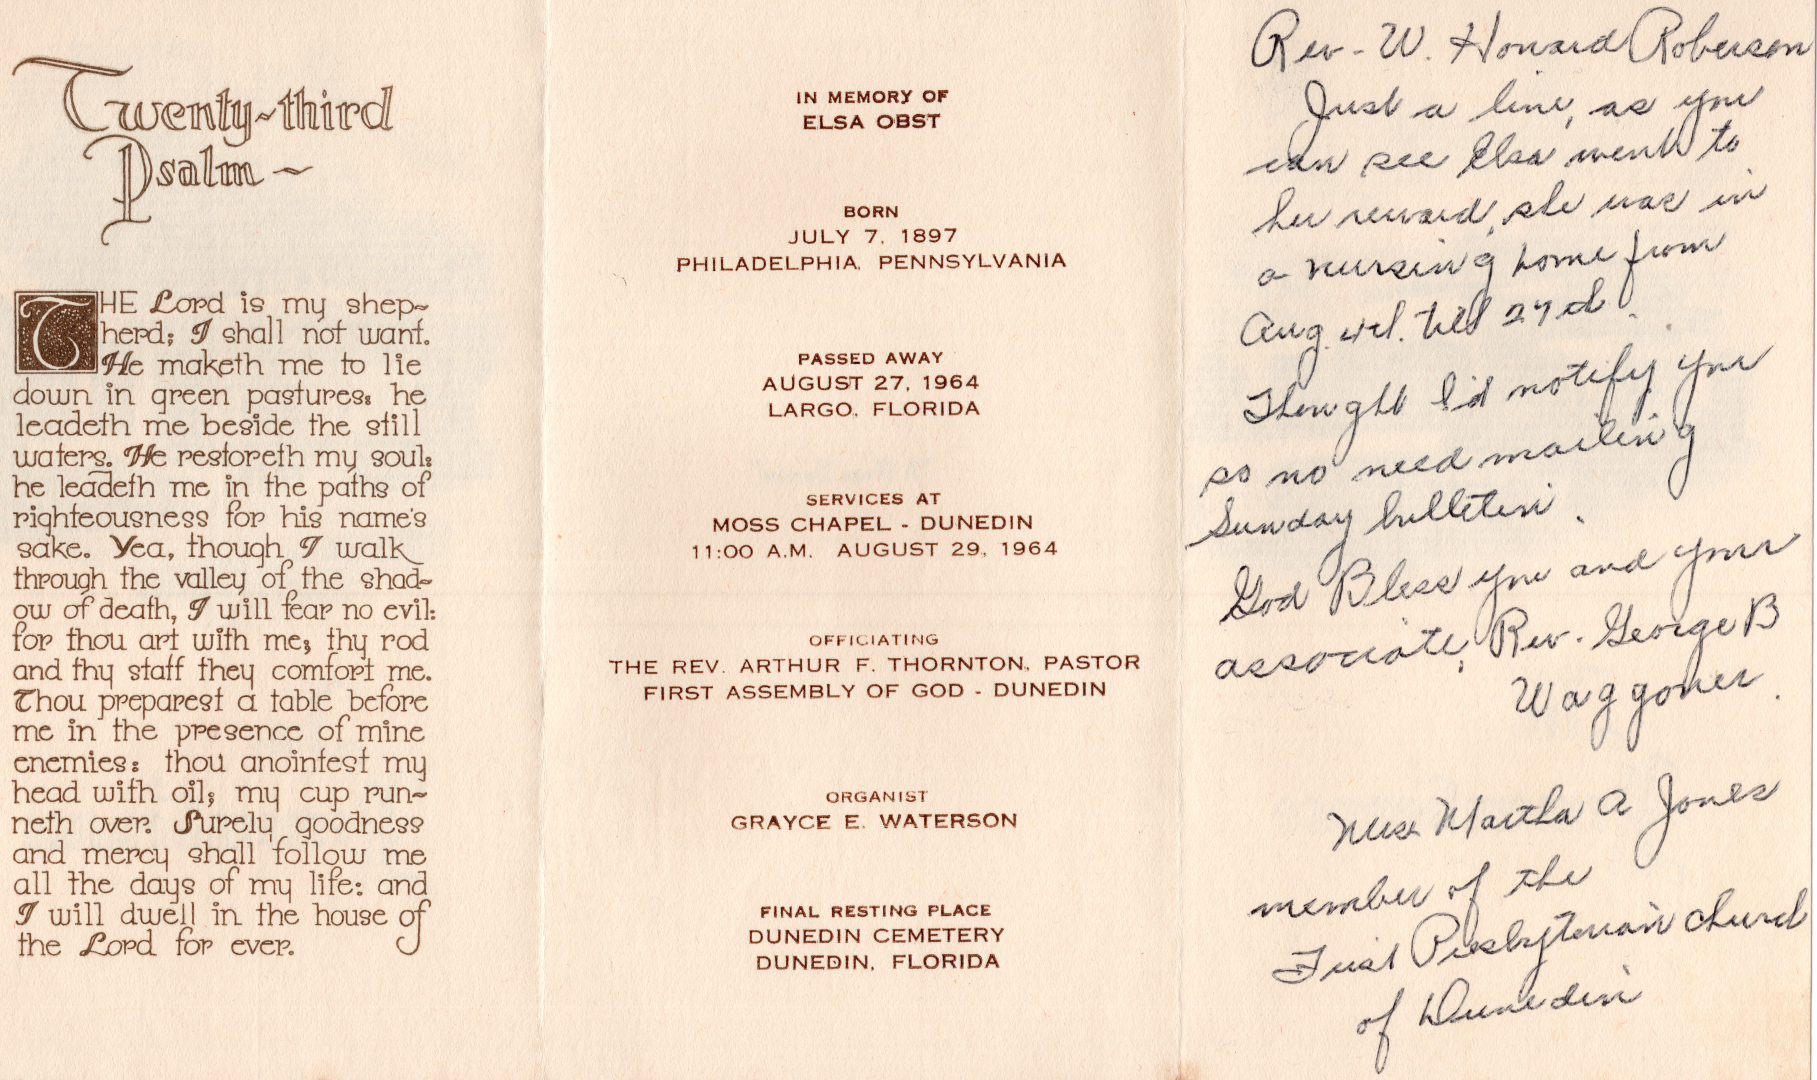 Twenty-third
Psalm
THE Lord is my shep-
herd; I shall not want.
He maketh me to lie
down in green pastures: he
leadeth me beside the still
waters. He restoreth my soul:
he leadeth me in the paths of
righteousness for his name's
sake. Yea, though I walk
through the valley of the shad-
ow of death, I will fear no evil:
for thou art with me; thy rod
and thy staff they comfort me.
Thou preparest a table before
me in the presence of mine
enemies: thou anointest my
head with oil; my cup run-
neth over. Surely goodness
and mercy shall follow me
all the days of my life: and
I will dwell in the house of
the Lord for ever.
IN MEMORY OF
ELSA OBST
BORN
JULY 7, 1897
PHILADELPHIA, PENNSYLVANIA
PASSED AWAY
AUGUST 27, 1964
LARGO, FLORIDA
SERVICES AT
MOSS CHAPEL - DUNEDIN
11:00 A.M. AUGUST 29, 1964
OFFICIATING
THE REV. ARTHUR F. THORNTON, PASTOR
FIRST ASSEMBLY OF GOD - DUNEDIN
ORGANIST
GRAYCE E. WATERSON
FINAL RESTING PLACE
DUNEDIN CEMETERY
DUNEDIN, FLORIDA
Rev - W. Howard Roberson
Just a line, as you
can see Elsa went to
her reward, she was in
a nursing home from
Aug. till 27ed.
Thought I'd notify you
so no need mailing
Sunday bulletin.
God Bless you and your
associate, Rev. George B
Waggoner.
Miss Martha A Jones
member of the
First Presbyterian church
of Dunedin